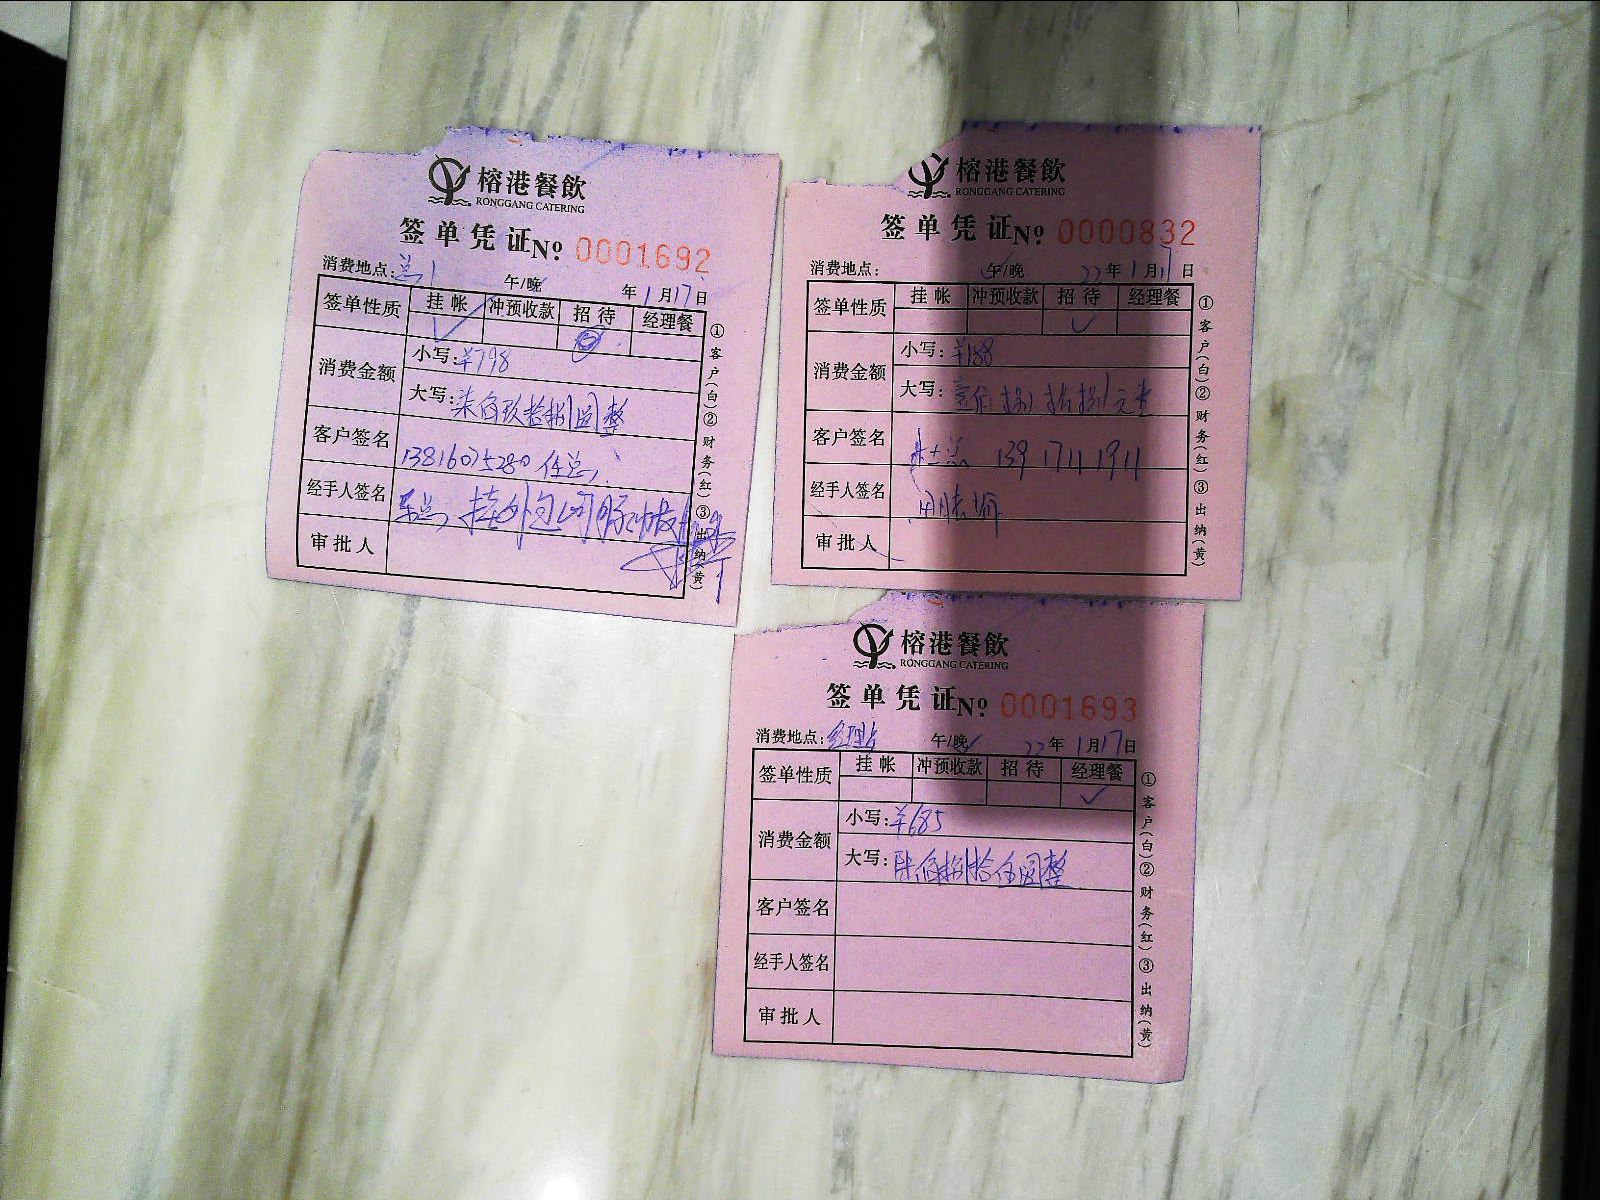 榕港餐飲
RONGGANG CATERING
签单凭证 №: 0001692
消费地点: 午/晚 年 1月17日
签单性质 挂帐 冲预收款 招待 经理餐
消费金额
小写:¥798
大写:柒佰玖拾捌圆整
客户签名 13816075280 任总
经手人签名
审批人
①客户(白)②财务(红)③出纳(黄)
榕港餐飲
RONGGANG CATERING
签单凭证 №: 0000832
消费地点: 午/晚 22年 1月17日
签单性质 挂帐 冲预收款 招待 经理餐
消费金额
小写:¥188
大写:壹佰捌拾捌元整
客户签名 139 1711 1911
经手人签名
审批人
①客户(白)②财务(红)③出纳(黄)
榕港餐飲
RONGGANG CATERING
签单凭证 №: 0001693
消费地点:经理 午/晚 22年 1月17日
签单性质 挂帐 冲预收款 招待 经理餐
消费金额
小写:¥685
大写:陆佰捌拾伍圆整
客户签名
经手人签名
审批人
①客户(白)②财务(红)③出纳(黄)